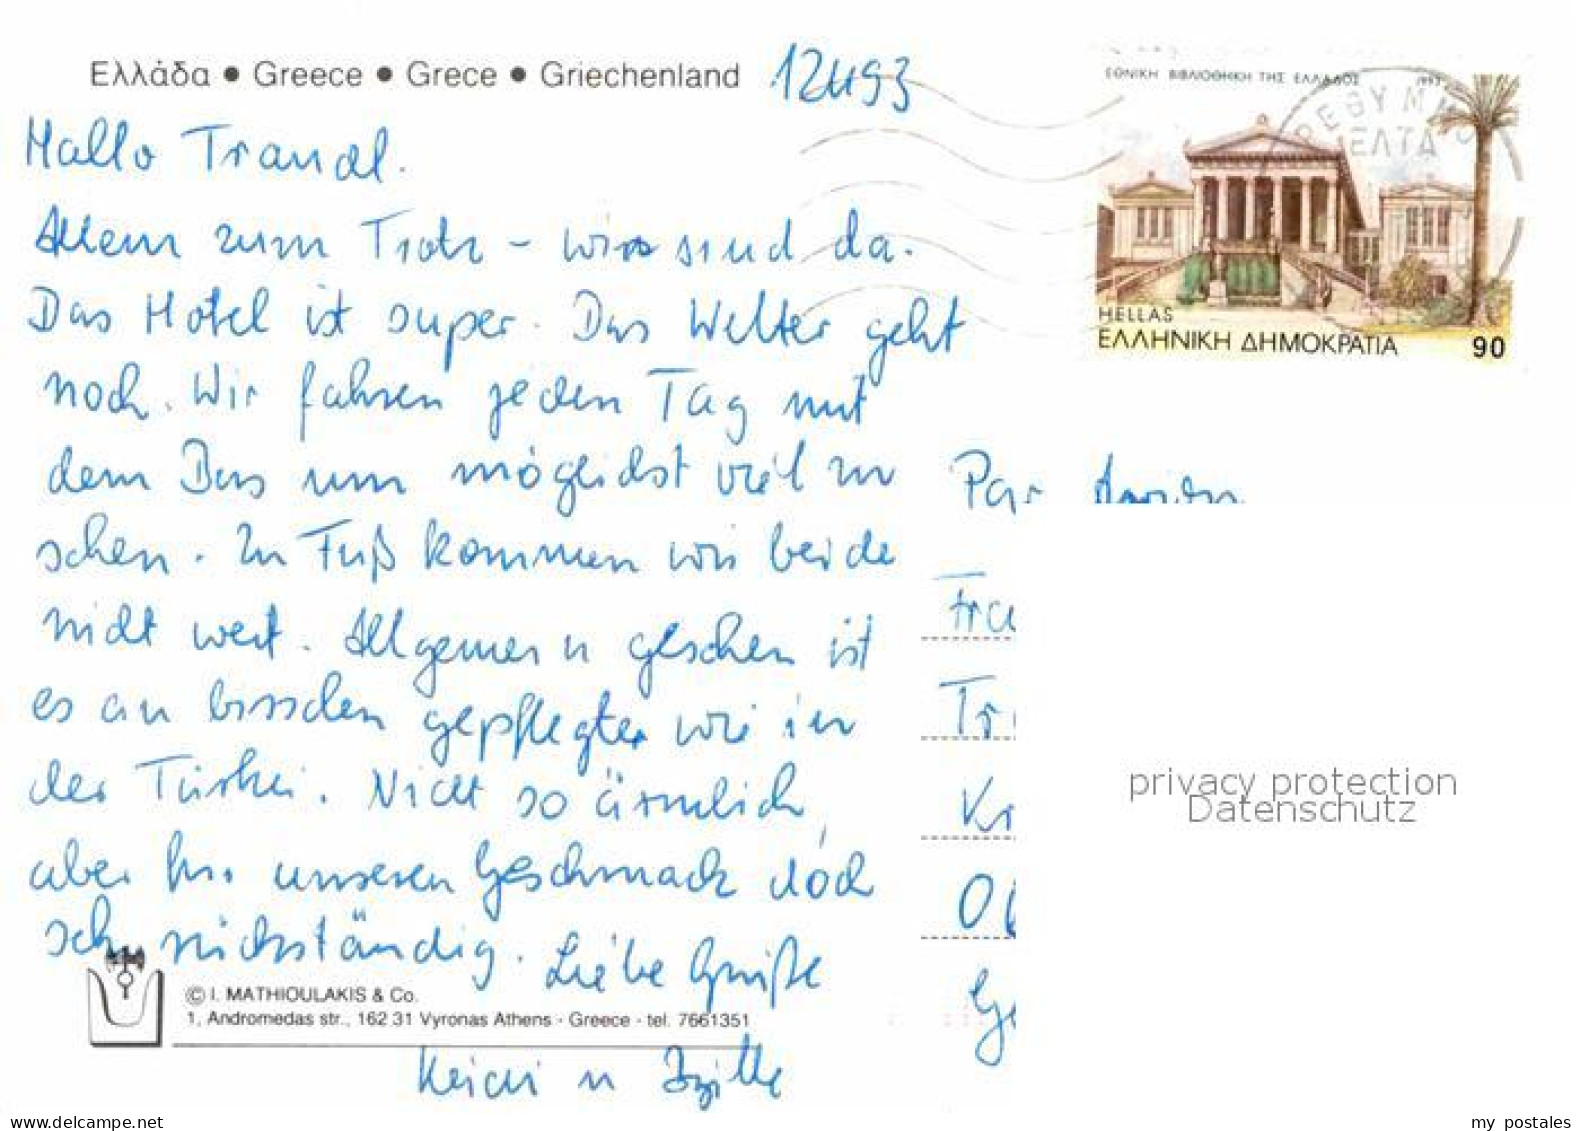 Ελλάδα • Greece • Grece • Griechenland
12 4 93
ΕΘΝΙΚΗ ΒΙΒΛΙΟΘΗΚΗ ΤΗΣ ΕΛΛΑΔΟΣ 1993
ΡΕΘΥΜΝΟ
ΕΛΤΑ
HELLAS
ΕΛΛΗΝΙΚΗ ΔΗΜΟΚΡΑΤΙΑ 90
Hallo Traudl.
Allem zum Trotz - wir sind da.
Das Hotel ist super. Das Wetter geht
noch. Wir fahren jeden Tag mit
dem Bus um möglichst viel zu
sehen. Zu Fuß kommen wir beide
nicht weit. Allgemein gesehen ist
es ein bisschen gepflegter wie in
der Türkei. Nicht so ärmlich,
aber für unseren Geschmack doch
sehr rückständig. Liebe Grüße
Par Avion
Tr
Kr
© I. MATHIOULAKIS & Co.
1, Andromedas str., 162 31 Vyronas Athens - Greece - tel. 7661351
privacy protection
Datenschutz
my postales